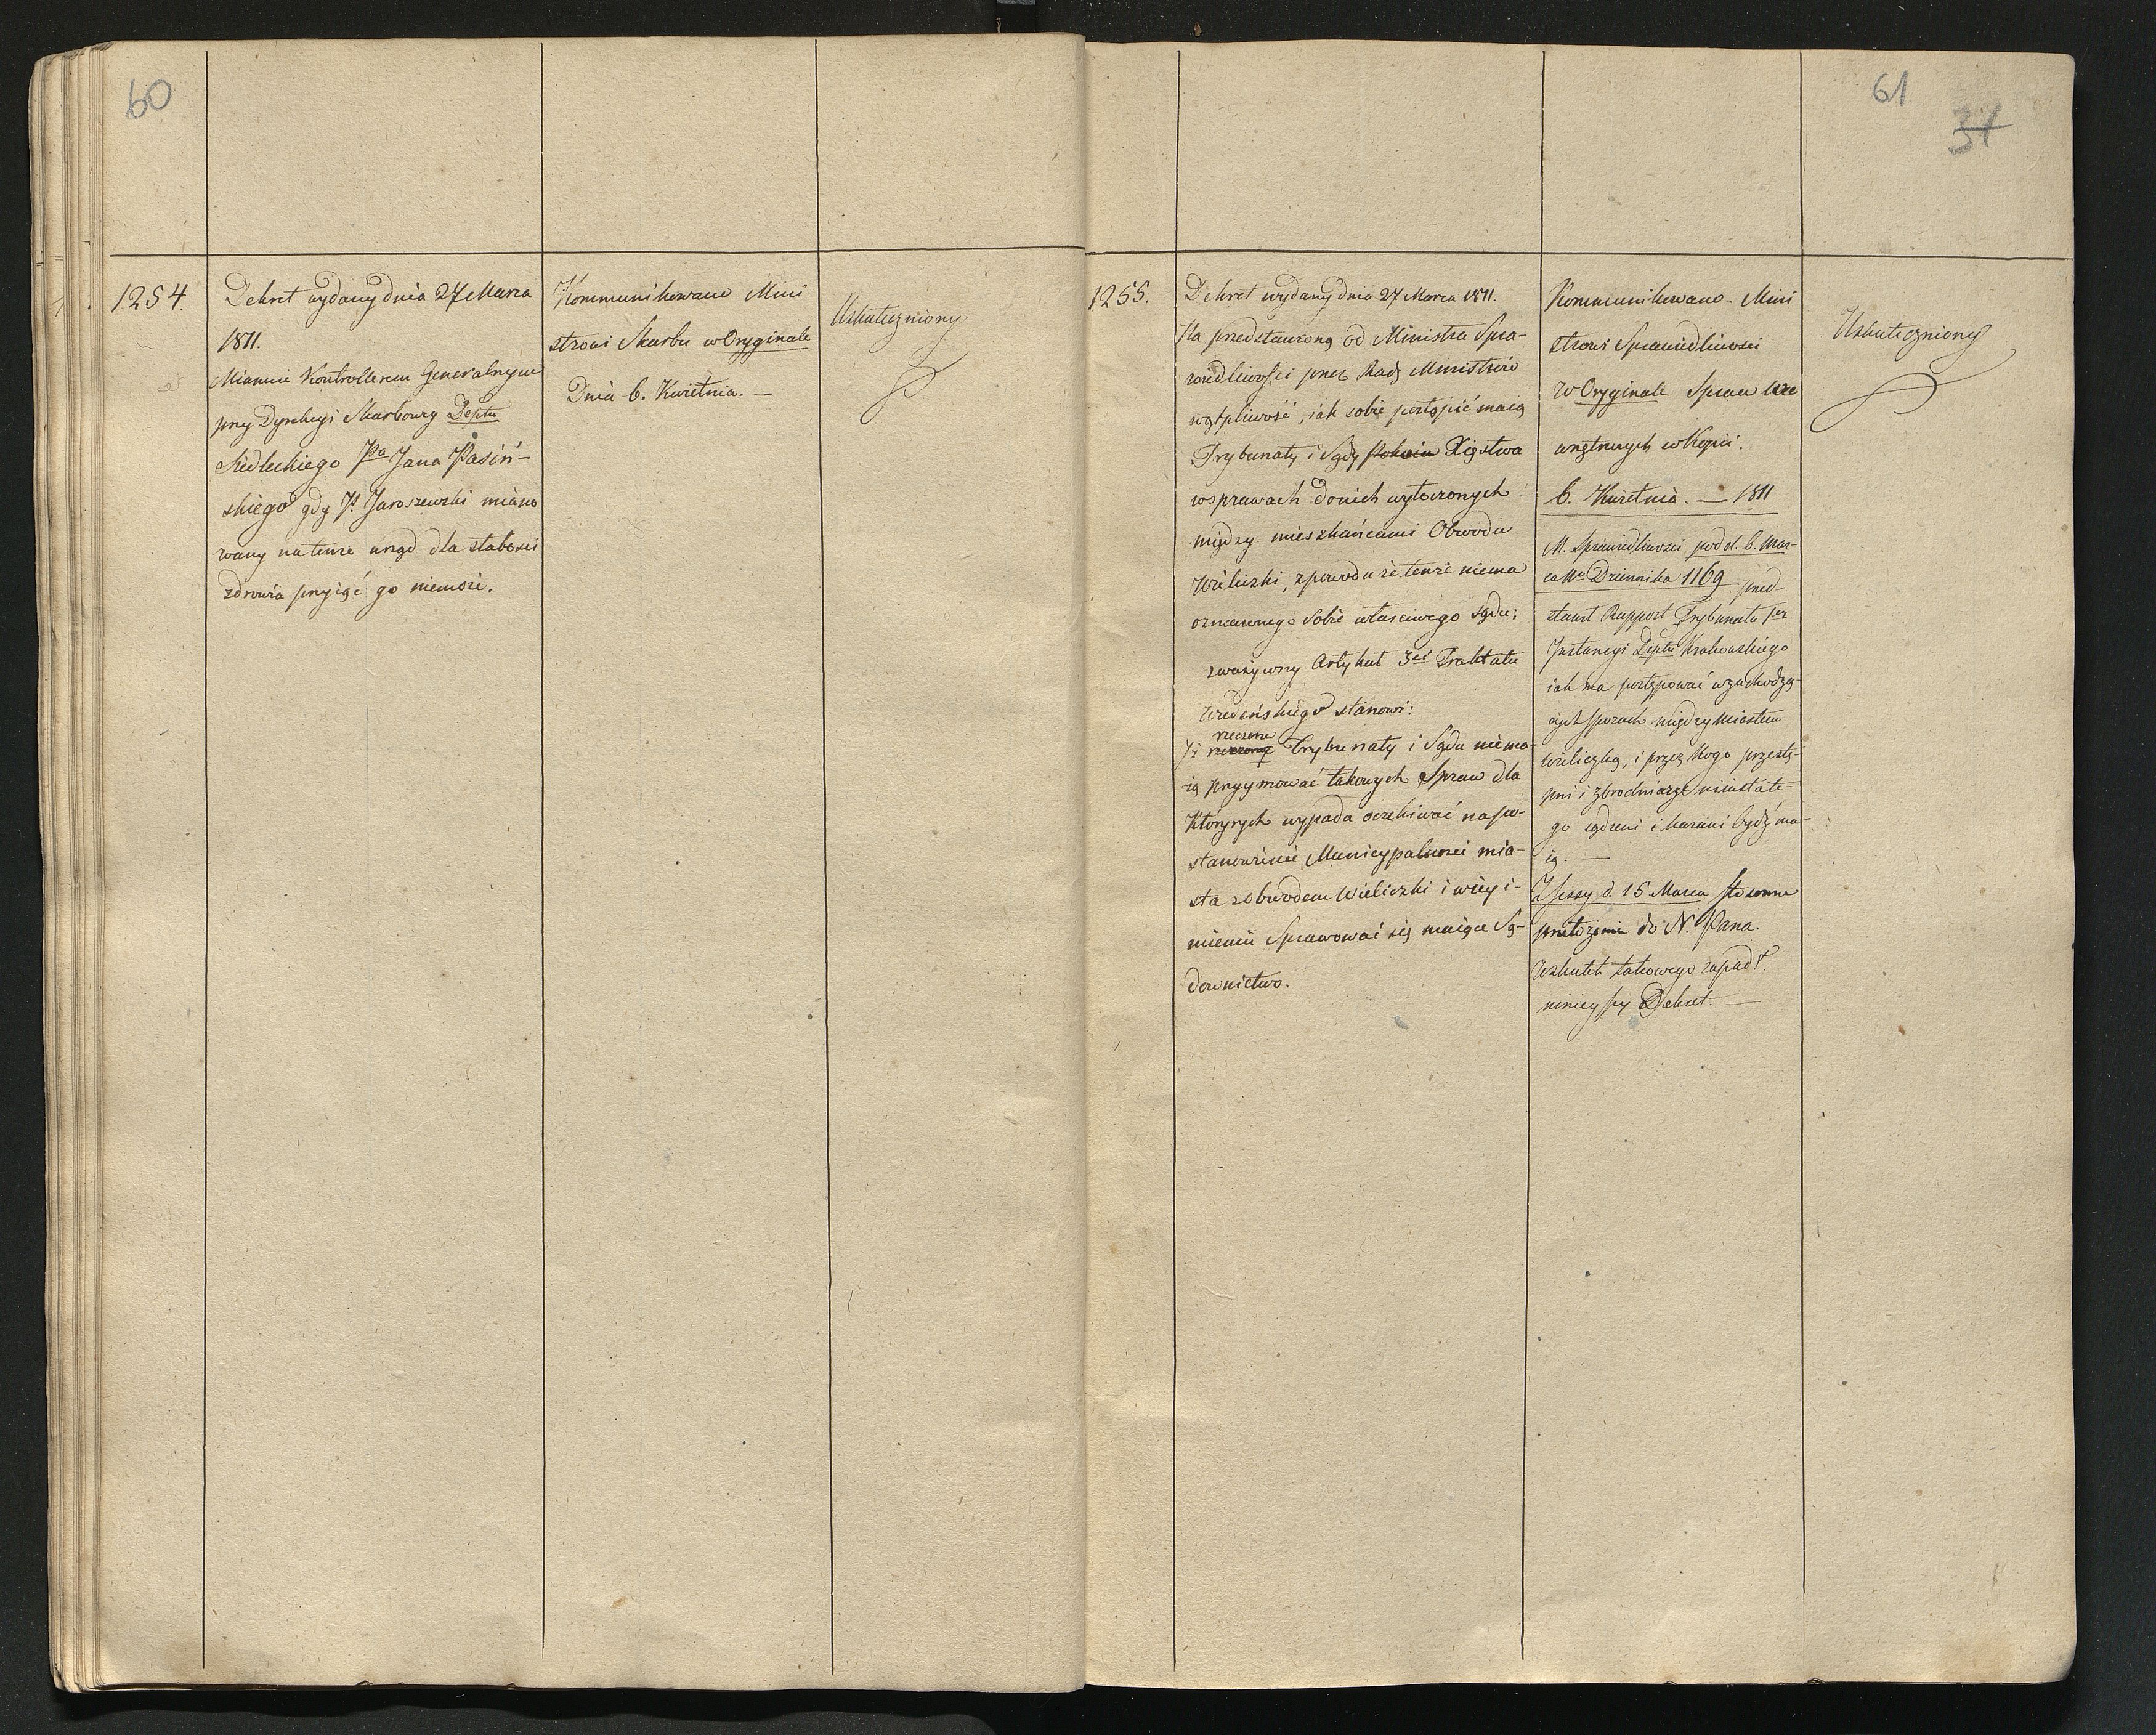 60
1254.
Dekret wydany dnia 27 Marca
1811.
Mianuie Kontrollerem Generalnym
przy Dyrekcyi Skarbowey Deptu
Siedleckiego Pa Jana Pasiń-
skiego gdy P. Jaroszewski miano
wany na tenże urząd dla słabości
zdrowia przyiąć go niemoże.
Kommunikowano Mini
strowi Skarbu w Oryginale
Dnia 6. Kwietnia. —
Uskuteczniony
61
37
1255.
Dekret wydany dnia 27 Marca 1811.
Na przedstawioną od Ministra Spra-
wiedliwości przez Radę Ministrów
wątpliwość, iak sobie postąpić maią
Trybunały i Sądy Pokoiu Xięstwa
w sprawach do nich wytoczonych
między mieszkańcami Obwodu
Wieliczki, z powodu że tenże niema
oznaczonego sobie właściwego Sądu;
zważywszy Artykuł 3ci Traktatu
Wiedeńskiego stanowi:
rzeczone
Iż rzeczone Trybunały i Sądu niema-
ią przyymować takowych Spraw dla
Których wypada oczekiwać na po-
stanowienie Municypalności mia-
sta z obwodem Wieliczki i w iey i-
mieniu Sprawować się maiące Są-
downictwo.
Kommunikowano Mini
strowi Sprawiedliwości
w Oryginale Spraw We
wnętrznych w Kopii.
6. Kwietnia. — 1811
M. Sprawiedliwości pod d. 6. Mar-
ca No Dziennika 1169 przed-
stawił Rapport Trybunału 1ey
Instancyi Deptu Krakowskiego
iak ma postępować w zachodzą-
cych sporach między Miastem
Wieliczką, i przez Kogo przestę-
pni i zbrodniarze miasta te-
go sądzeni i karani bydź ma-
ią. —
Z Sessy d. 15 Marca stosowne
przełożenie do N. Pana.
Wskutek takowego zapadł
ninieyszy Dekret. —
Uskuteczniony